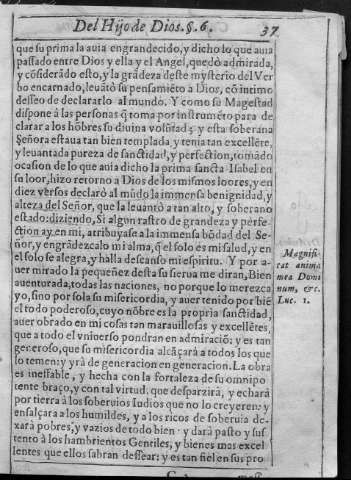 Del Hijo de Dios. §. 6.
37.
que su prima la auia engrandecido, y dicho lo que auia
passado entre Dios y ella y el Angel, quedò admirada,
y cõsiderãdo esto, y la grãdeza deste mysterio del Ver
bo encarnado, leuãtò su pensamiẽto a Dios, cõ intimo
desseo de declararlo al mũdo. Y como su Magestad
dispone à las personas q̃ toma por instrumẽto para de
clarar a los hõbres su diuina volũtad; y esta soberana
Señora estaua tan bien templada, y tenia tan excellẽte,
y leuantada pureza de sanctidad, y perfection, tomãdo
ocasion de lo que auia dicho la prima sancta Isabel en
su loor, hizo retorno a Dios de los mismos loores, y en
diez versos declarò al mũdo la immensa benignidad, y
alteza del Señor, que la leuantò a tan alto, y soberano
estado: diziendo, Si algun rastro de grandeza y perfe-
ction ay en mi, atribuyase a la immensa bõdad del Se-
ñor, y engrãdezcalo mi alma, q̃ el solo es mi salud, y en
el solo se alegra, y halla descanso mi espiritu. Y por a-
uer mirado la pequeñez desta su sierua me diran, Bien
auenturada, todas las naciones, no porque lo merezca
yo, sino por sola su misericordia, y auer tenido por biẽ
el todo poderoso, cuyo nõbre es la propria sanctidad,
auer obrado en mi cosas tan marauillosas y excellẽtes,
que a todo el vniuerso pondran en admiraciõ; y es tan
generoso, que su misericordia alcãçarà a todos los que
lo temen: y yrà de generacion en generacion. La obra
es ineffable, y hecha con la fortaleza de su omnipo
tente braço, y con tal virtud, que desparzirà, y echarà
por tierra à los soberuios Iudios que no lo creyeren: y
ensalçara a los humildes, y a los ricos de soberuia de-
xarà pobres, y vazios de todo bien: y darà pasto y sus
tento à los hambrientos Gentiles, y bienes mas excel
lentes que ellos sabran dessear: y es tan fiel en sus pro
Magnifi-
cat anima
mea Domi
num, &c.
Luc. 1.